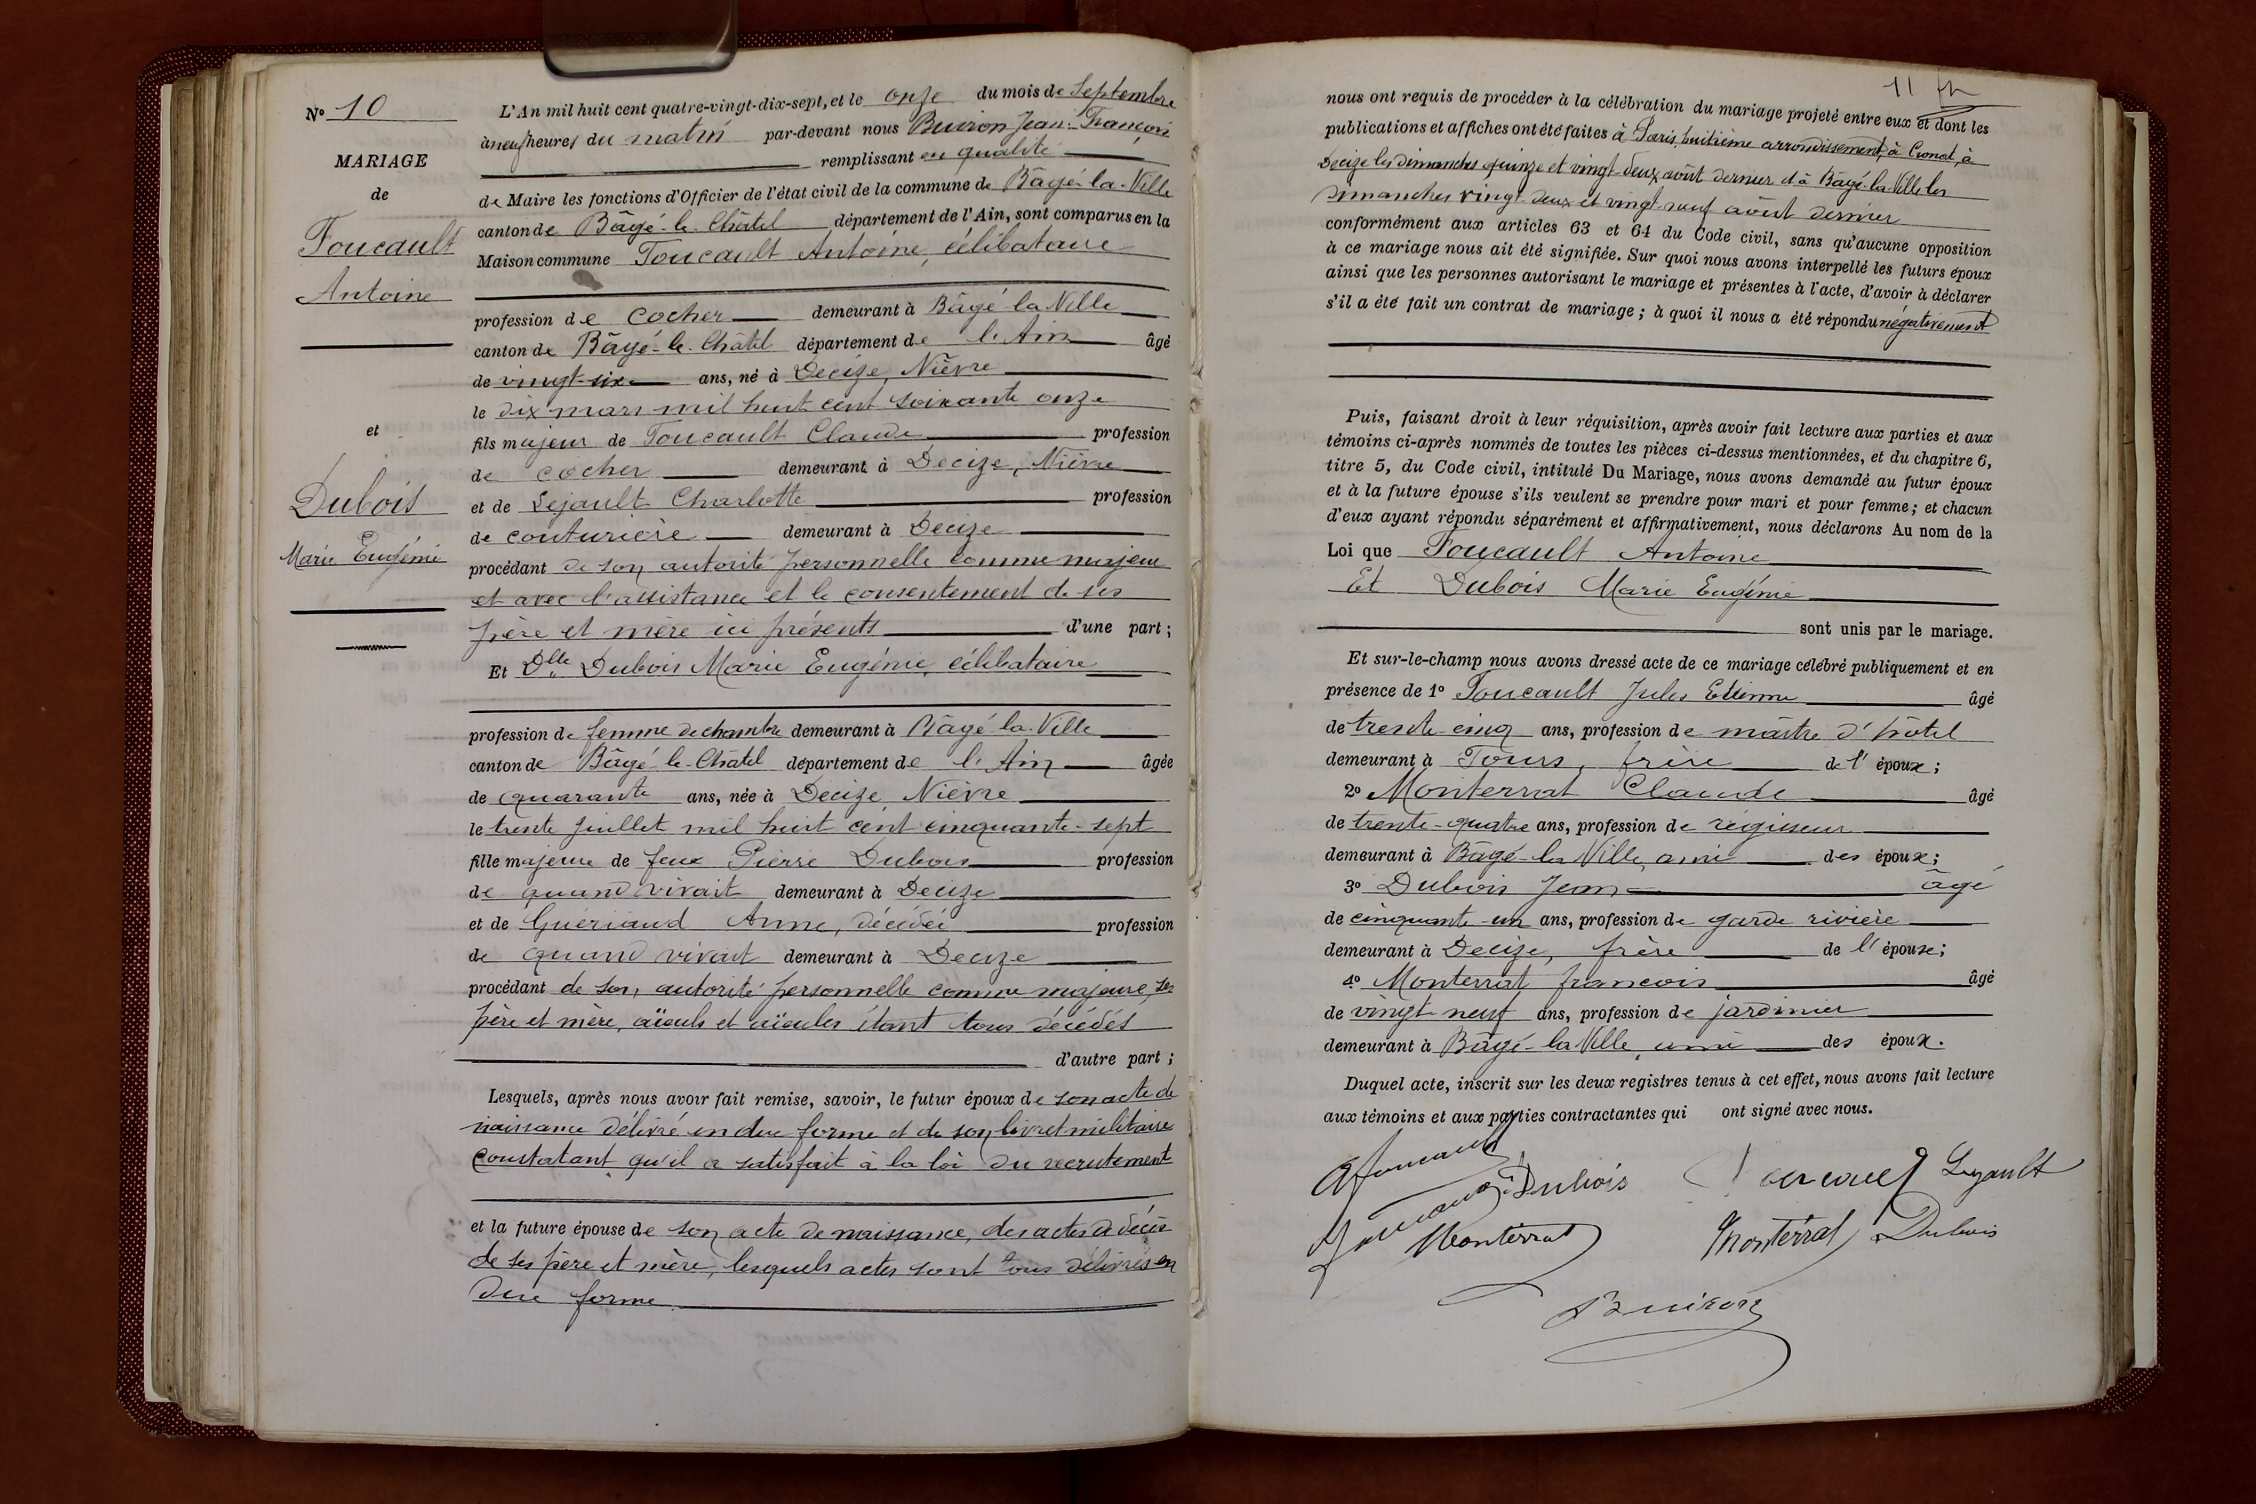 N° 10
MARIAGE
de
Foucault
Antoine
et
Dubois
Marie Eugénie
L'An mil huit cent quatre-vingt-dix-sept, et le onze du mois de Septembre
à neuf heures du matin par-devant nous Buiron Jean-François
remplissant en qualité
de Maire les fonctions d'Officier de l'état civil de la commune de Bâgé-la-Ville
canton de Bâgé-le-Châtel département de l'Ain, sont comparus en la
Maison commune Foucault Antoine, célibataire
profession de cocher demeurant à Bâgé la Ville
canton de Bâgé-le-Châtel département de l'Ain âgé
de vingt-six ans, né à Decize, Nièvre
le dix mars mil huit cent soixante onze
fils majeur de Foucault Claude profession
de cocher demeurant à Decize, Nièvre
et de Lejault Charlotte profession
de couturière demeurant à Decize
procédant de son autorité personnelle comme majeur
et avec l'assistance et le consentement de ses
père et mère ici présents d'une part ;
Et Dlle Dubois Marie Eugénie, célibataire
profession de femme de chambre demeurant à Bâgé la Ville
canton de Bâgé-le-Châtel département de l'Ain âgée
de quarante ans, née à Decize, Nièvre
le trente juillet mil huit cent cinquante-sept
fille majeure de feux Pierre Dubois profession
de quand vivait demeurant à Decize
et de Guériaud Anne, décédée profession
de quand vivait demeurant à Decize
procédant de son autorité personnelle comme majeure, ses
père et mère, aïeuls et aïeules étant tous décédés
d'autre part ;
Lesquels, après nous avoir fait remise, savoir, le futur époux de son acte de
naissance délivré en due forme et de son livret militaire
constatant qu'il a satisfait à la loi du recrutement
et la future épouse de son acte de naissance, des actes de décès
de ses père et mère, lesquels actes sont tous délivrés en
due forme
11
nous ont requis de procéder à la célébration du mariage projeté entre eux et dont les
publications et affiches ont été faites à Paris, huitième arrondissement, à Cronat, à
Decize les dimanches quinze et vingt-deux août dernier et à Bâgé-la-Ville les
dimanches vingt-deux et vingt-neuf août dernier
conformément aux articles 63 et 64 du Code civil, sans qu'aucune opposition
à ce mariage nous ait été signifiée. Sur quoi nous avons interpellé les futurs époux
ainsi que les personnes autorisant le mariage et présentes à l'acte, d'avoir à déclarer
s'il a été fait un contrat de mariage ; à quoi il nous a été répondu négativement
Puis, faisant droit à leur réquisition, après avoir fait lecture aux parties et aux
témoins ci-après nommés de toutes les pièces ci-dessus mentionnées, et du chapitre 6,
titre 5, du Code civil, intitulé Du Mariage, nous avons demandé au futur époux
et à la future épouse s'ils veulent se prendre pour mari et pour femme ; et chacun
d'eux ayant répondu séparément et affirmativement, nous déclarons Au nom de la
Loi que Foucault Antoine
Et Dubois Marie Eugénie
sont unis par le mariage.
Et sur-le-champ nous avons dressé acte de ce mariage célébré publiquement et en
présence de 1° Foucault Jules Etienne âgé
de trente cinq ans, profession de maître d'hôtel
demeurant à Tours, frère de l'époux ;
2° Monterrat Claude âgé
de trente-quatre ans, profession de régisseur
demeurant à Bâgé-la Ville, ami des époux ;
3° Dubois Jean âgé
de cinquante-un ans, profession de garde rivière
demeurant à Decize, frère de l'épouse ;
4° Monterrat françois âgé
de vingt neuf ans, profession de jardinier
demeurant à Bâgé-la Ville, ami des époux.
Duquel acte, inscrit sur les deux registres tenus à cet effet, nous avons fait lecture
aux témoins et aux parties contractantes qui ont signé avec nous.
A foucault Dubois Foucault Lejault
Monterrat Monterrat Dubois
Buiron